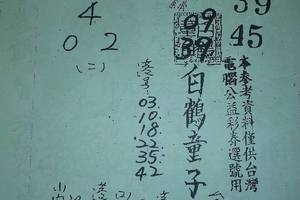 39
45
本參考資料僅供台灣
電腦公益彩券選號用
09
39
白鶴童子
4
0 2
(二)
03.
10.
18.
22.
35.
42
(2)